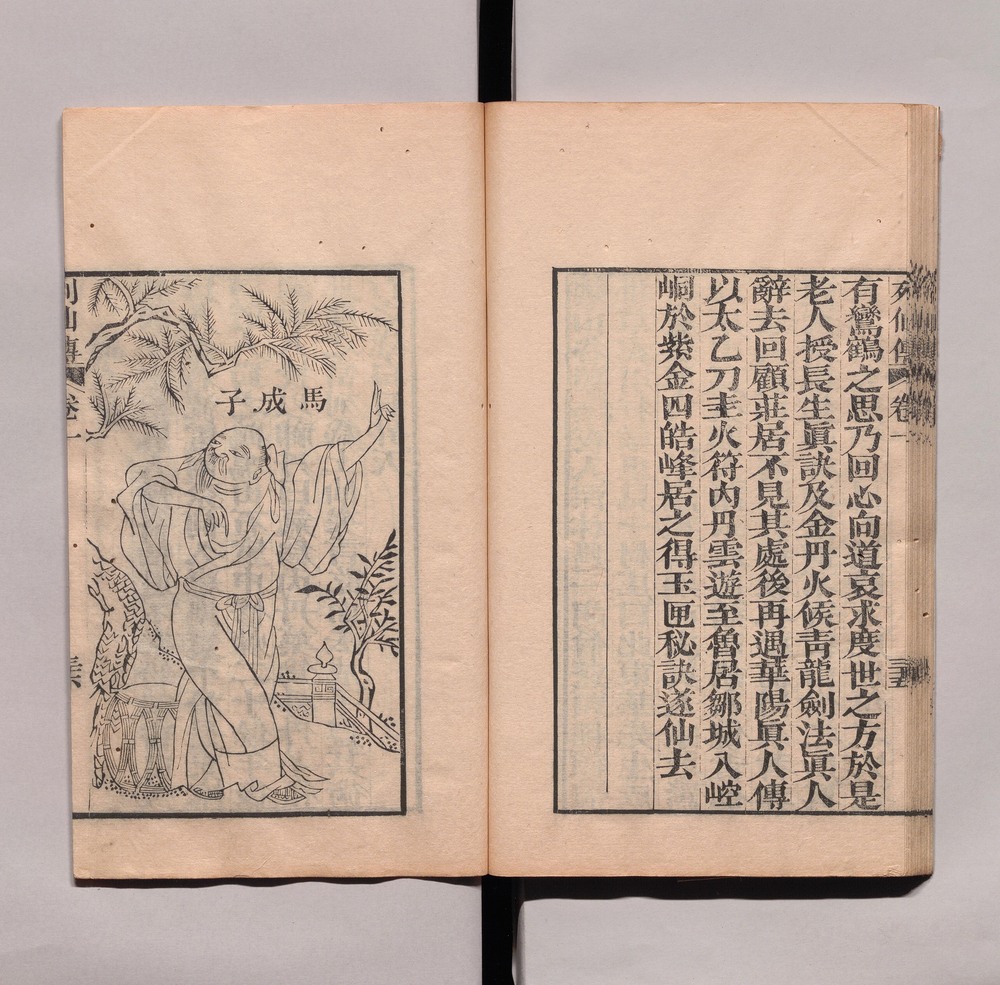 列仙傳 卷一 三五
有鸞鶴之思乃回心向道哀求度世之方於是
老人授長生眞訣及金丹火候靑龍劍法眞人
辭去回顧莊居不見其處後再遇華陽眞人傳
以太乙刀圭火符內丹雲遊至魯居鄒城入崆
峒於紫金四皓峰居之得玉匣秘訣遂仙去
馬成子
列仙傳 卷一